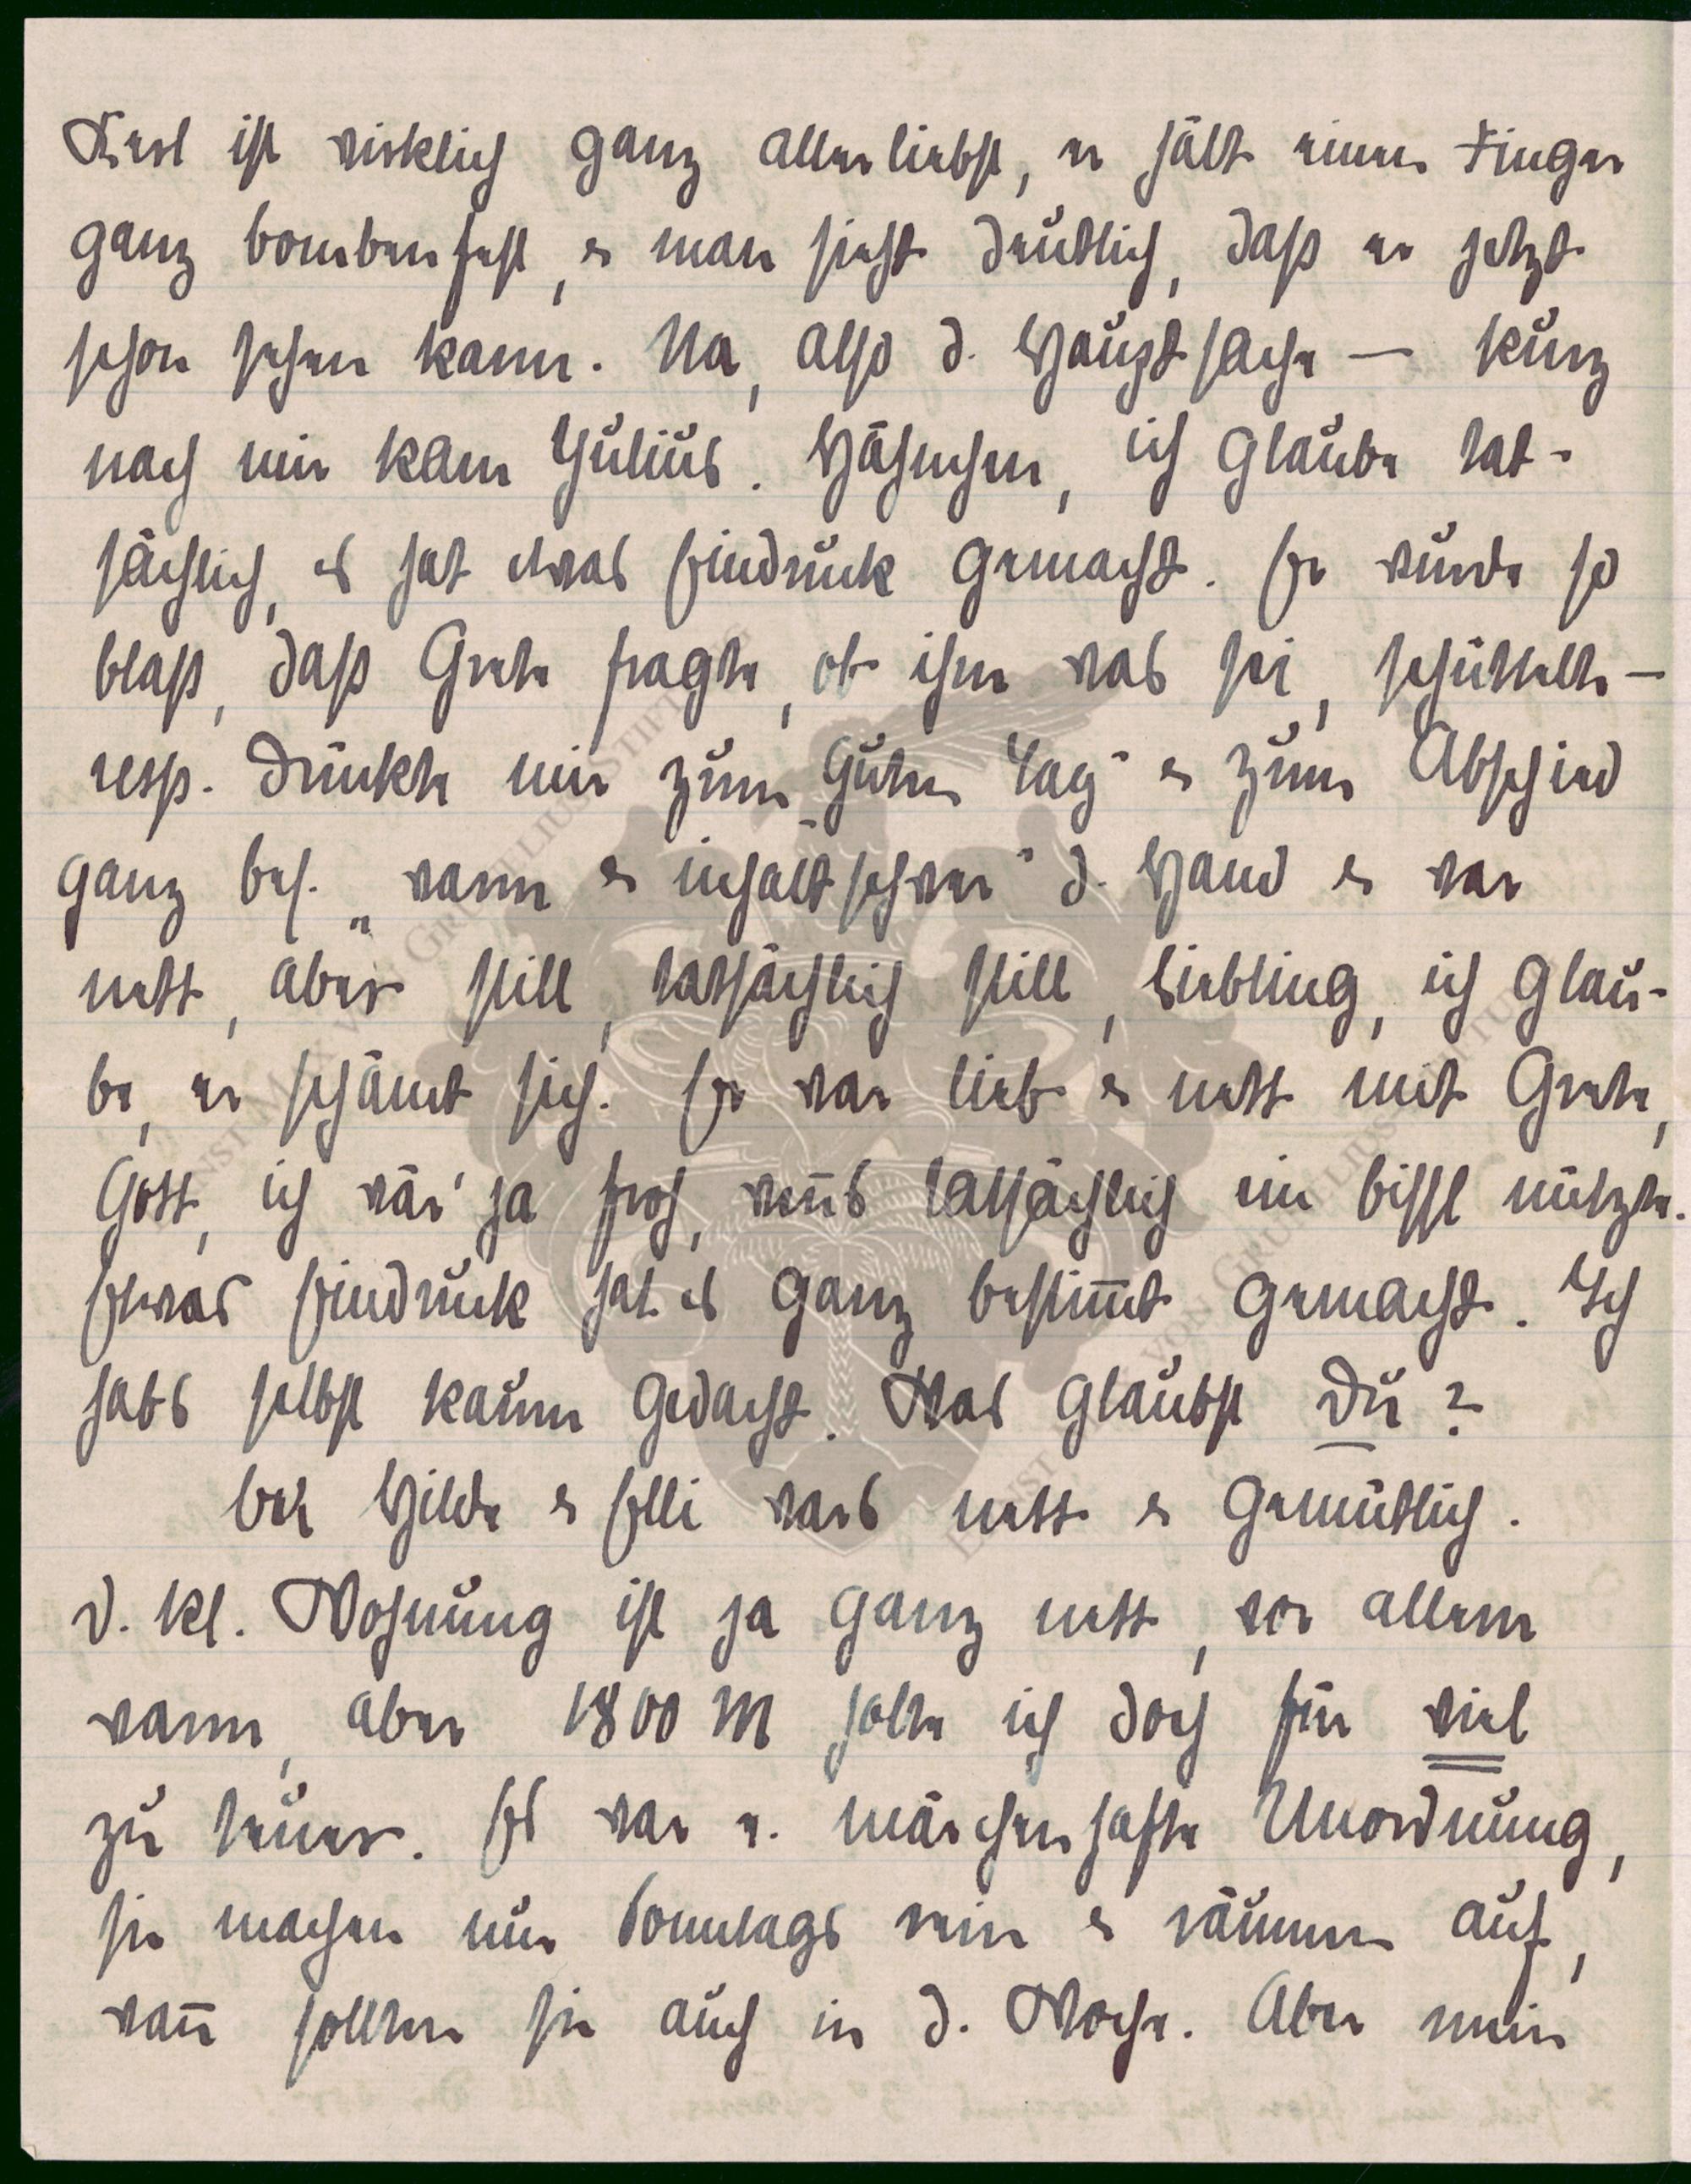 Kerl ist wirklich ganz allerliebst, er hält einen Finger
ganz bombenfest, u man sieht deutlich, daß er jetzt
schon sehen kann. Na, also d. Hauptsache — kurz
nach mir kam Julius. Häschen, ich glaube tat-
sächlich, es hat etwas Eindruck gemacht. Er wurde so
blaß, daß Grete fragte, ob ihm was sei, schüttelte —
resp. drückte mir zum „Guten Tag" u zum Abschied
ganz bes. „warm u inhaltschwer" d. Hand u war
nett, aber still, tatsächlich still, Liebling, ich glau-
be, er schämt sich. Er war lieb u nett mit Grete,
Gott, ich wär' ja froh, wen̄s tatsächlich ein bissl nützte.
Etwas Eindruck hat es ganz bestim̄t gemacht. Ich
habs selbst kaum gedacht. Was glaubst Du?
Bei Hilde u Elli wars nett u gemütlich.
D. kl. Wohnung ist ja ganz nett, vor allem
warm, aber 1800 M halte ich doch für viel
zu teuer. Es war e. märchenhafte Unordnung,
sie machen nur Sonntags rein u räumen auf,
wan̄ sollten sie auch in d. Woche. Aber mein
ERNST MAX VON GRUNELIUS STIFTUNG
ERNST MAX VON GRUNELIUS STIFTUNG